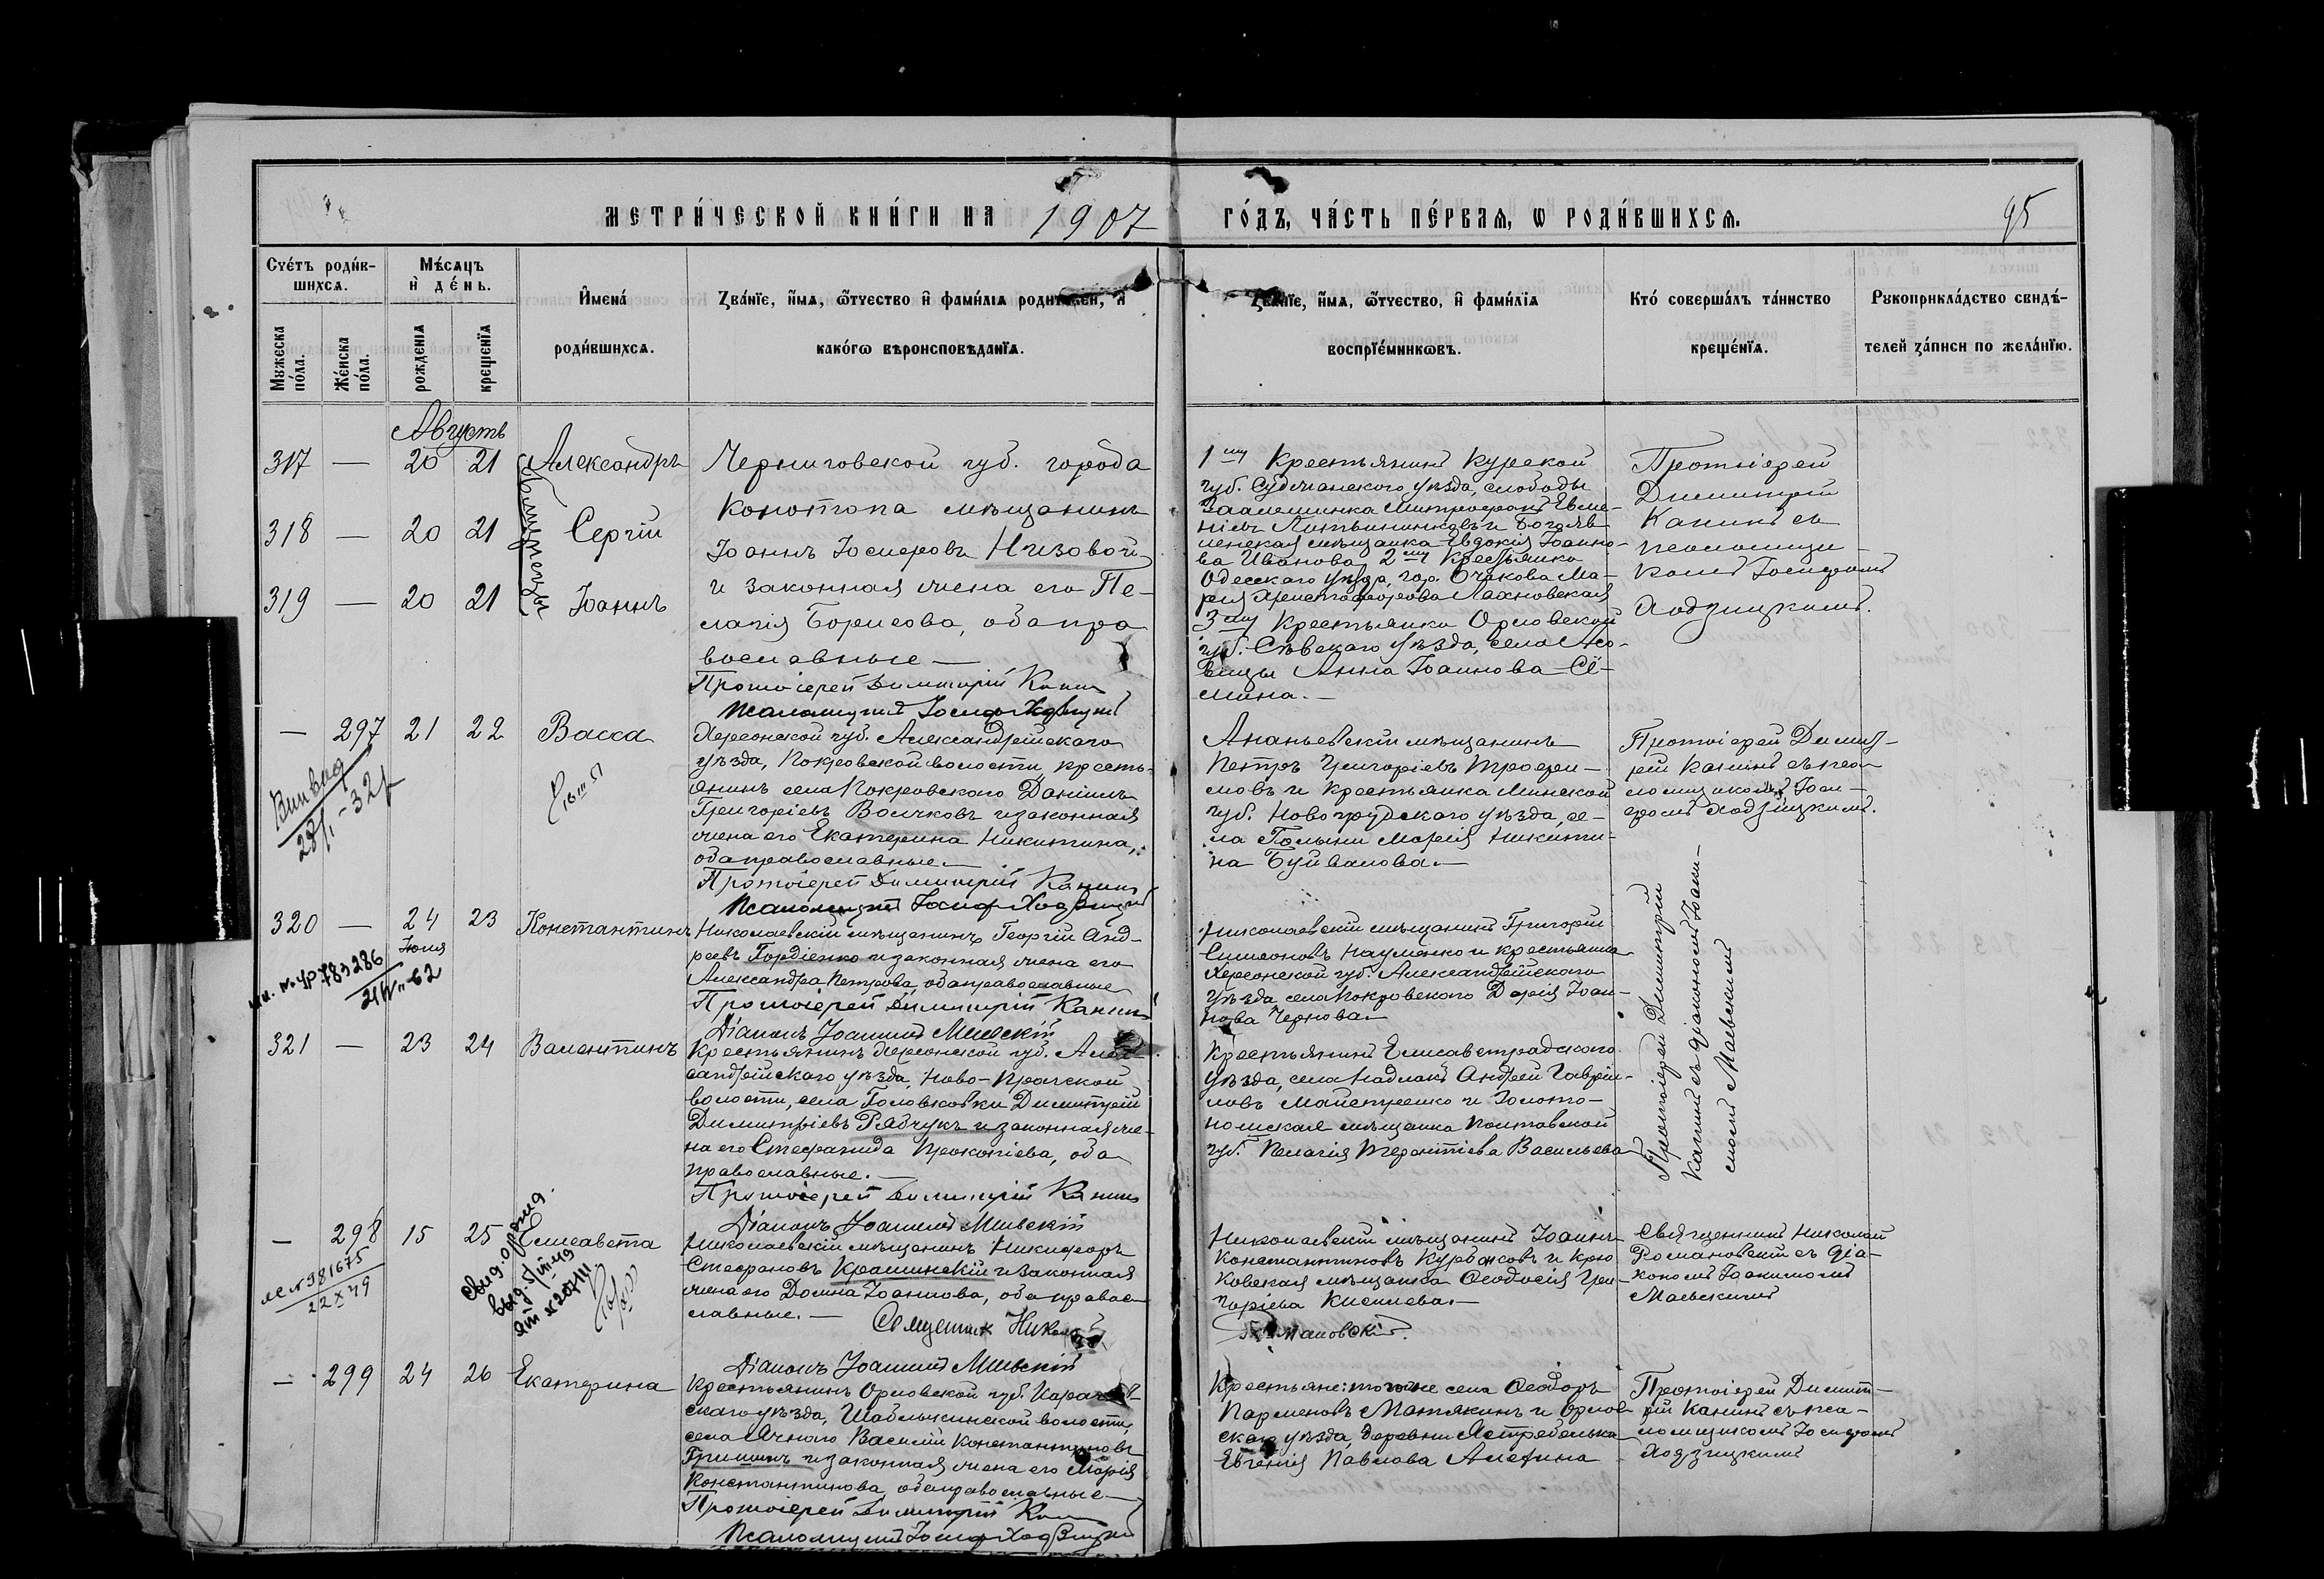 МЕТРИ́ЧЕСКОЙ КНИ́ГИ НА 1907 ГО́ДЪ, ЧА́СТЬ ПЕ́РВАѦ, Ѡ РОДИ́ВШИХСѦ.
95
Сче́тъ роди́в-
шихсѧ.
Мꙋжеска по́ла.
Же́нска по́ла.
Мѣ́сѧцъ
и҆ де́нь.
рожденїѧ
крещенїѧ
И҆мена́
роди́вшихсѧ.
Зва́нїе, и҆́мѧ, ѻ҆́тчество и҆ фами́лїѧ родителей, и҆
како́гѡ вѣроисповѣ́данїѧ.
Зва́нїе, и҆́мѧ, ѻ҆́тчество, и҆ фами́лїѧ
воспрїе́мникѡвъ.
Кто́ соверша́лъ та́инство
креще́нїѧ.
Рꙋкоприкла́дство свидѣ́-
телей за́писи по жела́нїю.
Августъ
317 — 20 21 Александръ
318 — 20 21 Сергій
319 — 20 21 Іоаннъ
Близнецы
Черниговской губ. города
Конотопа мѣщанинъ
Іоаннъ Іосифовъ Низовой
и законная жена его Пе-
лагія Борисова, оба пра
вославные —
Протоіерей Димитрій Канинъ
Псаломщикъ Іосифъ Ходзицкій
1му Крестьянинъ Курской
губ. Суджанскаго уѣзда, слободы
Митрофанъ Евге-
ніевъ Литвиненковъ и
мѣщанка Евдокія Іоанно-
ва Иванова 2му Крестьянка
Одесскаго уѣзда, гор. Очакова Ма-
рія Христофорова Лахновская
3му Крестьянка Орловской
губ. Сѣвскаго уѣзда, села
Анна Іоаннова Сё-
мина. —
Протоіерей
Димитрій
Канинъ съ
псаломщи-
комъ Іосифомъ
Ходзицкимъ.
— 297 21 22 Васса
Херсонской губ. Александрійскаго
уѣзда, Покровской волости, кресть-
янинъ села Покровскаго Даніилъ
Григоріевъ Волчковъ и законная
жена его Екатерина Никитина,
оба православные. —
Протоіерей Димитрій Канинъ
Псаломщикъ Іосифъ Ходзицкій
Ананьевскій мѣщанинъ
Петръ Григоріевъ Трофи-
мовъ и крестьянка Минской
губ. Новогрудскаго уѣзда, се-
ла Голыни Марія Никити-
на Буйвалова. —
Протоіерей Димит-
рій Канинъ съ пса-
ломщикомъ Іоси-
фомъ Ходзицкимъ.
320 — 24 23 Константинъ
Іюля
783286
Николаевскій мѣщанинъ Георгій Анд-
реевъ Гордіенко и законная жена его
Александра Петрова, оба православные
Протоіерей Димитрій Канинъ
Діаконъ Іоакимъ Маевскій
Николаевскій мѣщанинъ Григорій
Симеоновъ Науменко и крестьянка
Херсонской губ. Александрійскаго
уѣзда села Покровскаго Дарія Іоан-
нова Чернова. —
Протоіерей Димитрій
Канинъ съ діакономъ Іоаки-
момъ Маевскимъ
321 — 23 24 Валентинъ
Крестьянинъ Херсонской губ. Алек-
сандрійскаго уѣзда, Ново-Прагской
волости, села Головковки Димитрій
Димитріевъ Рябчукъ и законная же-
на его Стефанида Прокопіева, оба
православные. —
Протоіерей Димитрій Канинъ
Діаконъ Іоакимъ Маевскій
Крестьянинъ Елисаветградскаго
уѣзда, села Надлакъ Андрей Гаврии-
ловъ Майстренко и Золото-
ношская мѣщанка Полтавской
губ. Пелагія Терентіева Васильева
— 298 15 25 Елисавета
381675
22 X 49
Николаевскій мѣщанинъ Никифоръ
Стефановъ Крашинскій и законная
жена его Домна Іоаннова, оба право-
славные. —
Священникъ Николай
Романовскій.
Діаконъ Іоакимъ Маевскій
Николаевскій мѣщанинъ Іоаннъ
Константиновъ Курбасовъ и Крю
ковская мѣщанка Ѳеодосія Гри-
горіева Киселева. —
Священникъ Николай
Романовскій съ діа-
кономъ Іоакимомъ
Маевскимъ
— 299 24 26 Екатерина
Крестьянинъ Орловской губ. Карачев-
скаго уѣзда, Шаблыкинской волости,
села Ячнаго Василій Константиновъ
Гришинъ и законная жена его Марія
Константинова, оба православные —
Протоіерей Димитрій Канинъ
Псаломщикъ Іосифъ Ходзицкій
Крестьяне: того же села Ѳеодоръ
Парменовъ Матякинъ и Орлов-
скаго уѣзда, деревни
Евгенія Павлова Алехина
Протоіерей Димит-
рій Канинъ съ пса-
ломщикомъ Іосифомъ
Ходзицкимъ